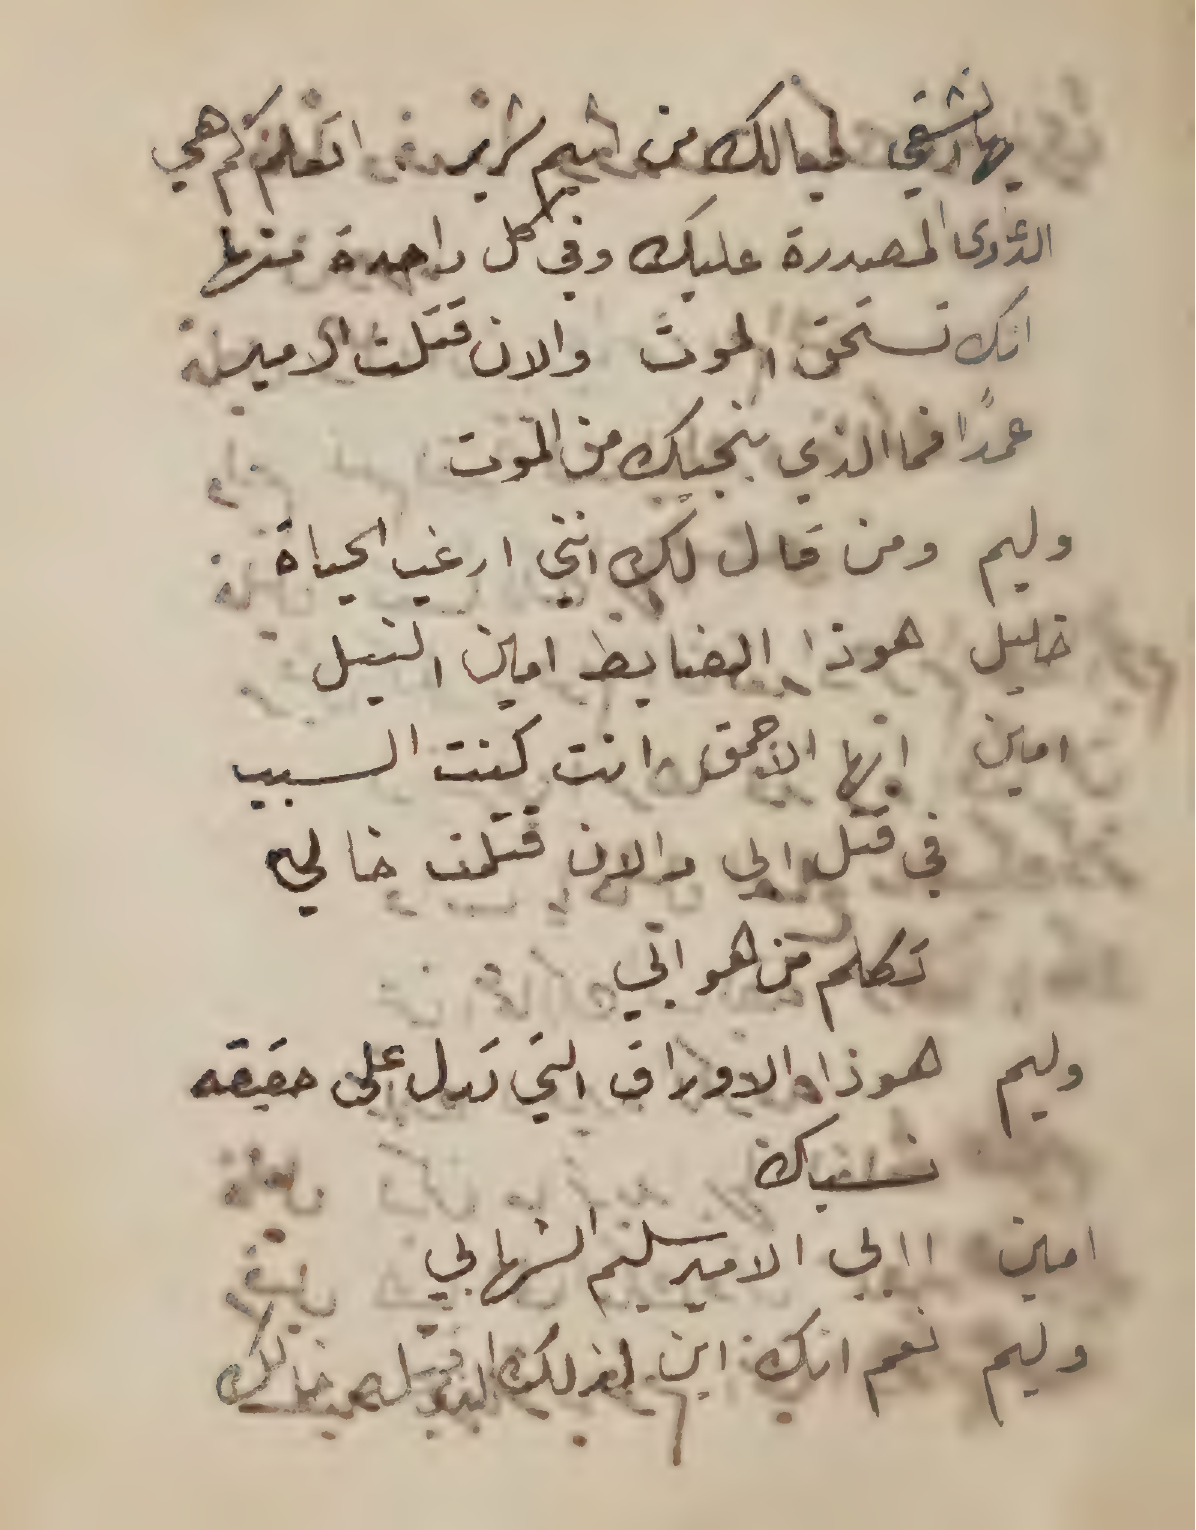 ايها الشقي يا لك من اثيم شرير اتعلم كم هي
الدعوى المصدرة عليك وفي كل واحدة منها
انك تستحق الموت والان قتلت الاميرة
عمدًا فما الذي ينجيك من الموت
وليم ومن قال لك انني ارغب الحياة
خليل هوذا الضابط امين النبيل
امين ايها الاحمق انت كنت السبب
في قتل ابي والان قتلت خالي
تكلم من هو ابي
وليم هوذا الاوراق التي تدل على حقيقه
نسبك
امين اابي الامير سليم الشهابي
وليم نعم انك ابن